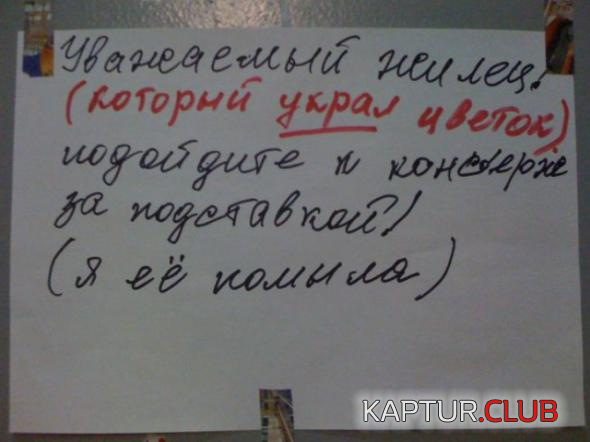 Уважаемый жилец!
(который украл цветок)
подойдите к консьерже
за подставкой!
(я её помыла)
KAPTUR.CLUB